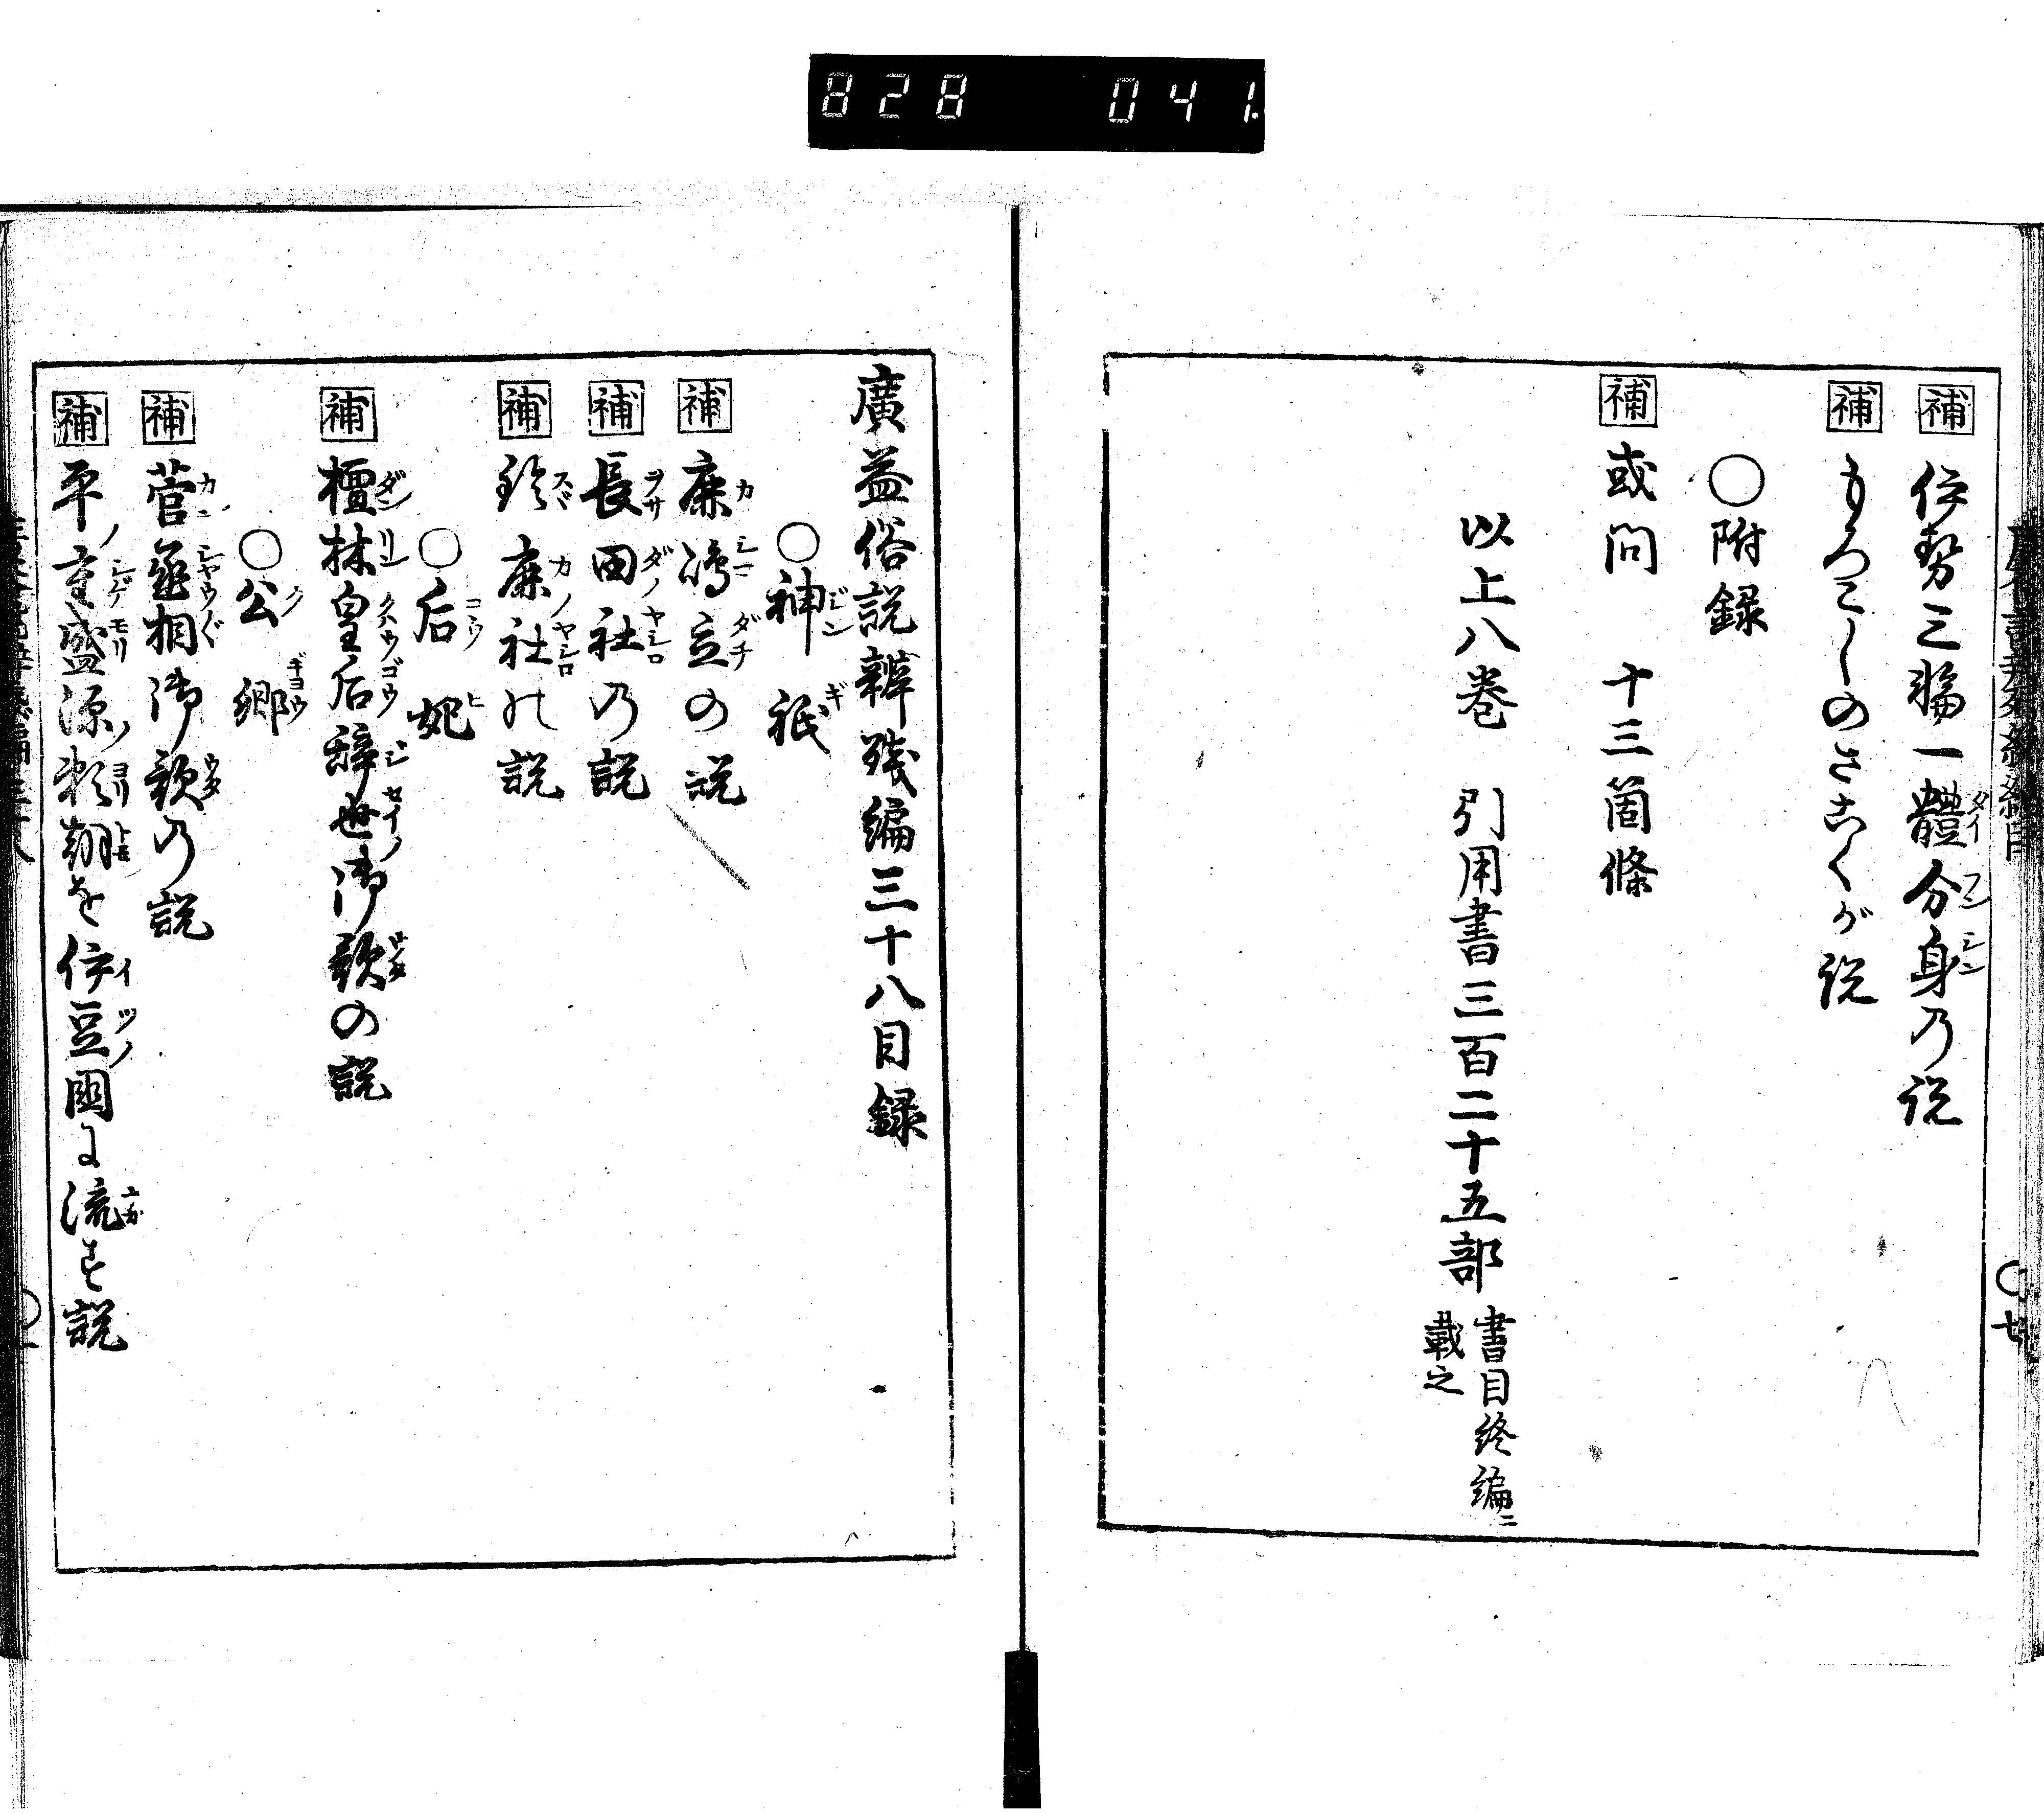 828 041
補 伊勢三輪一體分身乃説
補 もろこしのさこくが説
○附録
補 或問 十三箇條
以上八巻 引用書三百二十五部 書目終編ニ
載之
廣益俗説辨殘編三十八目録
○神祇
補 鹿嶋立の説
補 長田社乃説
補 鈴鹿社の説
○后妃
補 檀林皇后辭世御歌の説
○公卿
補 菅丞相御歌乃説
補 平重盛源頼朝を伊豆國に流す説